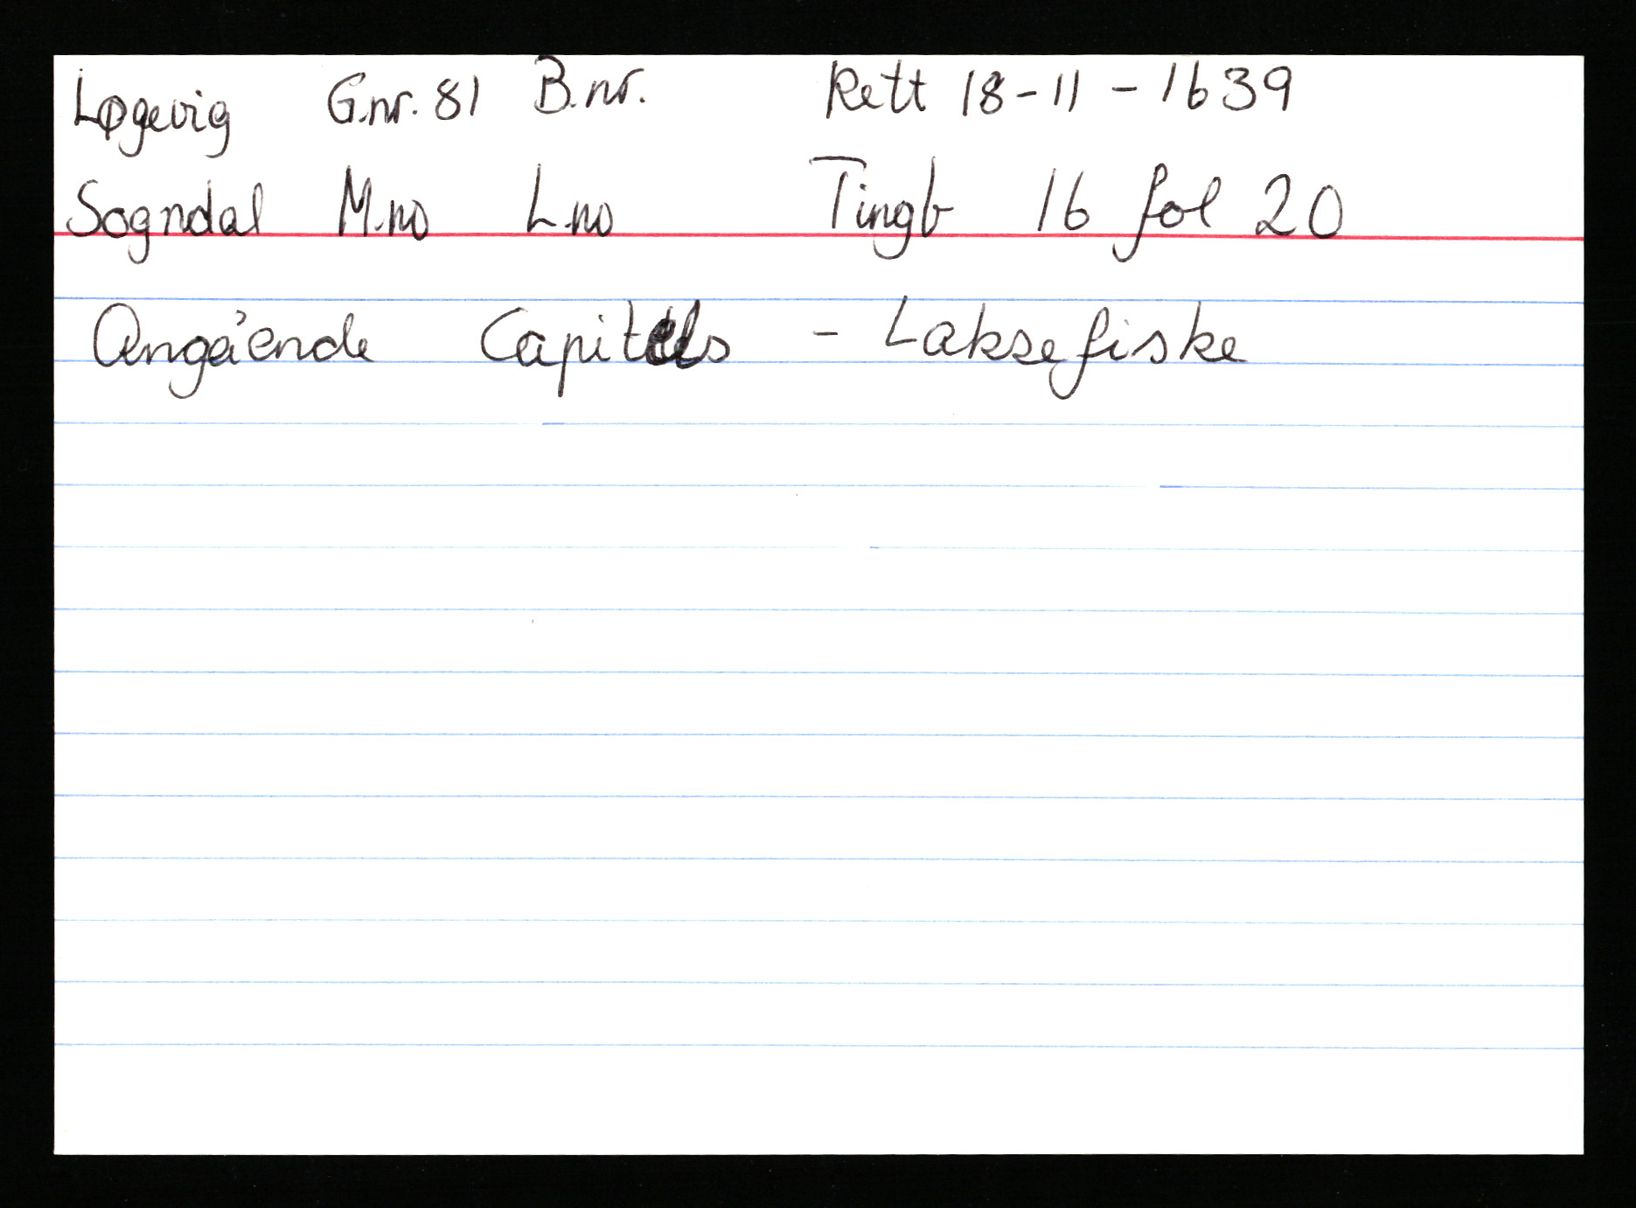 Løgevig G.nr. 81 B.nr. Rett 18-11-1639
Sogndal M.no L.no Tingb 16 fol 20
Angående Capitels - Laksefiske